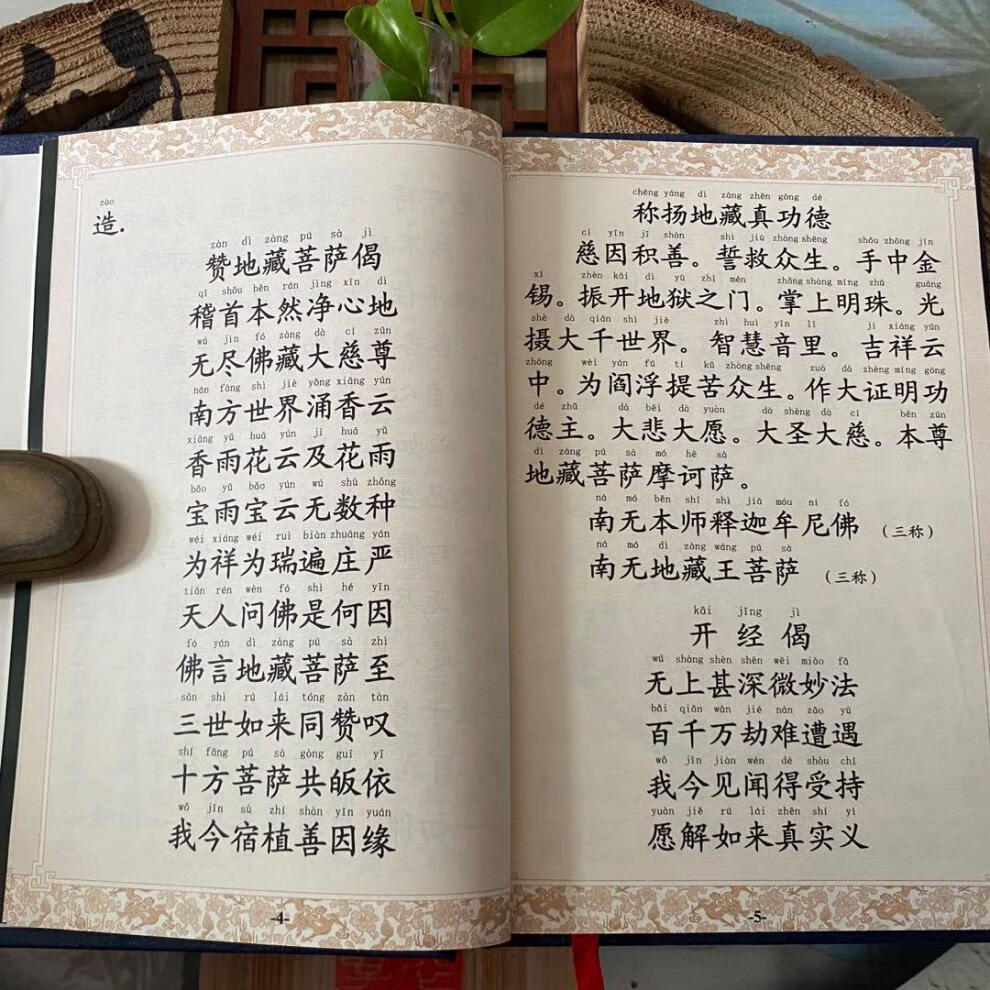 zào
造.
zàn dì zàng pú sà jì
赞地藏菩萨偈
qǐ shǒu běn rán jìng xīn dì
稽首本然净心地
wú jìn fó zàng dà cí zūn
无尽佛藏大慈尊
nán fāng shì jiè yǒng xiāng yún
南方世界涌香云
xiāng yǔ huā yún jí huā yǔ
香雨花云及花雨
bǎo yǔ bǎo yún wú shù zhǒng
宝雨宝云无数种
wéi xiáng wéi ruì biàn zhuāng yán
为祥为瑞遍庄严
tiān rén wèn fó shì hé yīn
天人问佛是何因
fó yán dì zàng pú sà zhì
佛言地藏菩萨至
sān shì rú lái tóng zàn tàn
三世如来同赞叹
shí fāng pú sà gòng guī yī
十方菩萨共皈依
wǒ jīn sù zhí shàn yīn yuán
我今宿植善因缘
-4-
chēng yáng dì zàng zhēn gōng dé
称扬地藏真功德
cí yīn jī shàn shì jiù zhòng shēng shǒu zhōng jīn
慈因积善。誓救众生。手中金
xī zhèn kāi dì yù zhī mén zhǎng shàng míng zhū guāng
锡。振开地狱之门。掌上明珠。光
shè dà qiān shì jiè zhì huì yīn lǐ jí xiáng yún
摄大千世界。智慧音里。吉祥云
zhōng wèi yán fú tí kǔ zhòng shēng zuò dà zhèng míng gōng
中。为阎浮提苦众生。作大证明功
dé zhǔ dà bēi dà yuàn dà shèng dà cí běn zūn
德主。大悲大愿。大圣大慈。本尊
dì zàng pú sà mó hē sà
地藏菩萨摩诃萨。
ná mó běn shī shì jiā móu ní fó
南无本师释迦牟尼佛（三称）
ná mó dì zàng wáng pú sà
南无地藏王菩萨（三称）
kāi jīng jì
开经偈
wú shàng shèn shēn wēi miào fǎ
无上甚深微妙法
bǎi qiān wàn jié nán zāo yù
百千万劫难遭遇
wǒ jīn jiàn wén dé shòu chí
我今见闻得受持
yuàn jiě rú lái zhēn shí yì
愿解如来真实义
-5-